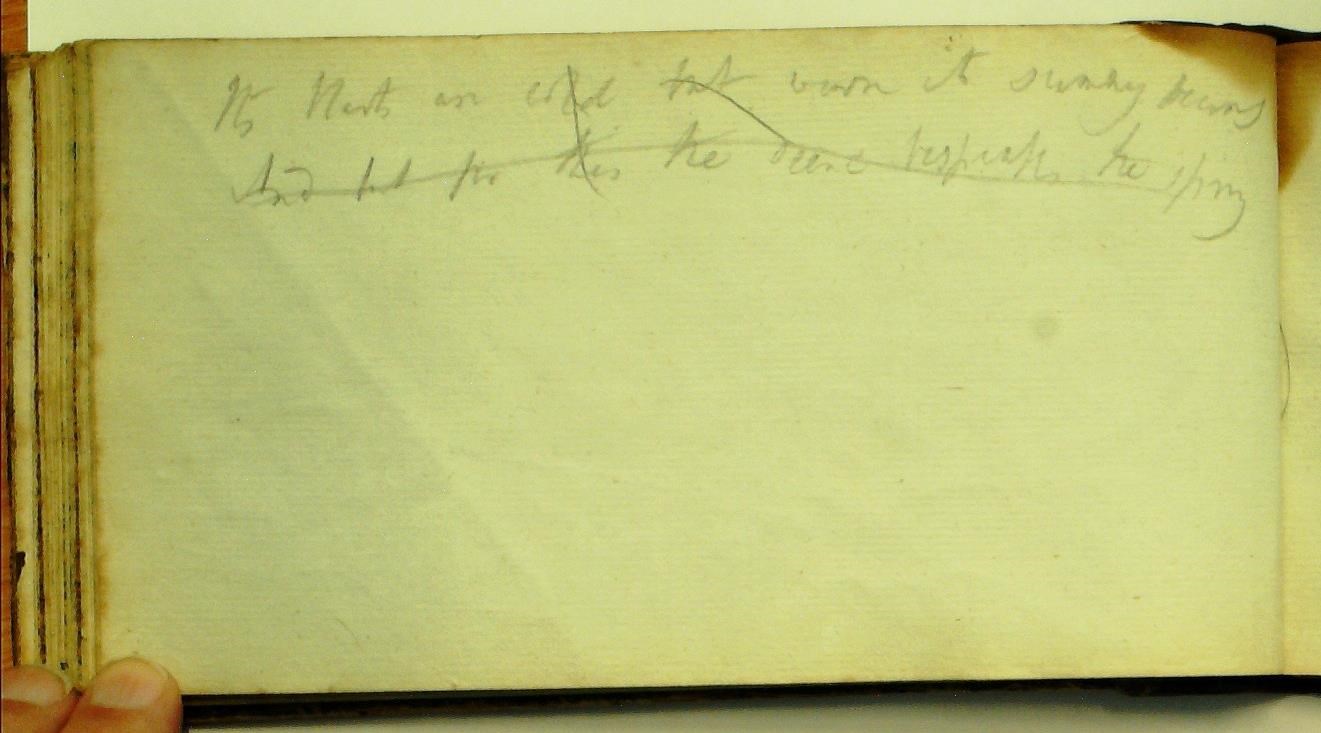 Its blasts are cold but warm its sunny beams
And but for this the scene bespeaks the spring